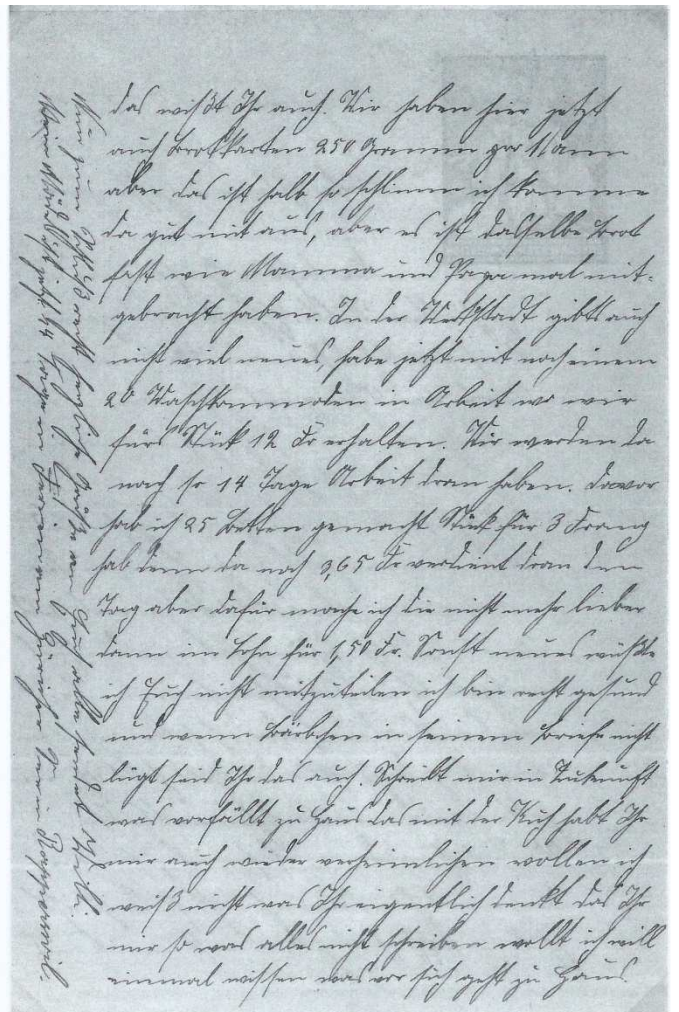 das wißt Ihr auch. Wir haben hier jetzt
auch Brotkarten 250 Gramm per Mann
aber das ist halb so schlimm ich komme
da gut mit aus, aber es ist dasselbe Brot
fast wie Mamma und Papa mal mit-
gebracht haben. In der Werkstadt gibts auch
nicht viel neues, habe jetzt mit noch einem
20 Waschkommoden in Arbeit wo wir
fürs Stük 12 Fr erhalten. Wir werden da
noch so 14 Tage Arbeit dran haben. Davor
hab ich 25 Betten gemacht Stük für 3 Frang
hab denn da noch 3,65 Fr verdient dran den
Tag aber dafür mache ich die nicht mehr lieber
dann im Lohn für 1,50 Fr. Sonst neues wüßte
ich Euch nicht mitzuteilen ich bin recht gesund
und wenn Bärbchen in seinem Briefe nicht
lügt seid Ihr das auch. Schreibt mir in Zukunft
was vorfällt zu Haus das mit der Kuh habt Ihr
mir auch wieder verheimlichen wollen ich
weiß nicht was Ihr eigentlich denkt das Ihr
mir so was alles nicht schreiben wollt ich will
einmal wissen was vor sich geht zu Haus.
Nun zum Schluß recht herzliche Grüße an Euch alle sendet Willi.